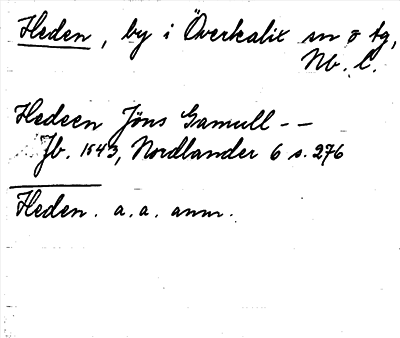 Heden, by i Överkalix sn o tg,
Nb. l.
Hedeen Jöns Gamull --
Jb. 1543, Nordlander 6 s. 276
Heden. a.a. anm.